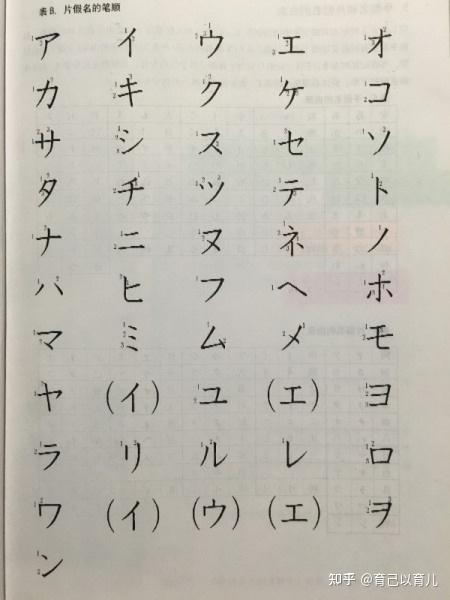 表 B. 片假名的笔顺
ア イ ウ エ オ
カ キ ク ケ コ
サ シ ス セ ソ
タ チ ツ テ ト
ナ ニ ヌ ネ ノ
ハ ヒ フ ヘ ホ
マ ミ ム メ モ
ヤ (イ) ユ (エ) ヨ
ラ リ ル レ ロ
ワ (イ) (ウ) (エ) ヲ
ン
知乎 @育己以育儿